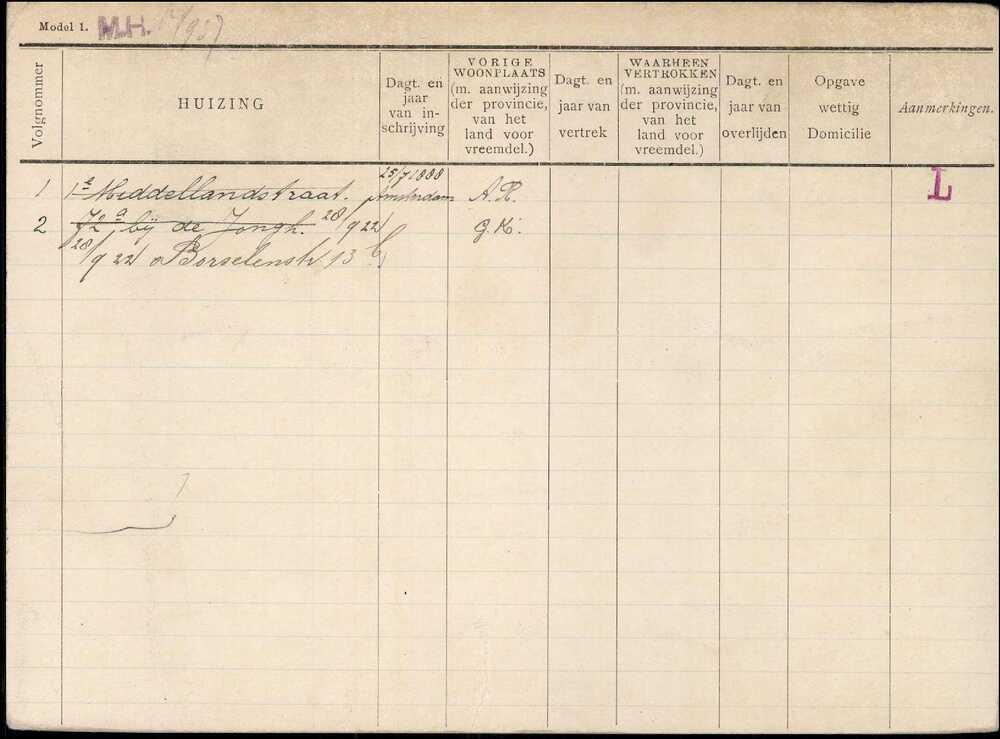 Model 1. M.H. 14/937
Volgnommer
HUIZING
Dagt. en
jaar
van in-
schrijving
VORIGE
WOONPLAATS
(m. aanwijzing
der provincie,
van het
land voor
vreemdel.)
Dagt. en
jaar van
vertrek
WAARHEEN
VERTROKKEN
(m. aanwijzing
der provincie,
van het
land voor
vreemdel.)
Dagt. en
jaar van
overlijden
Opgave
wettig
Domicilie
Aanmerkingen.
1 1e Middellandstraat. 25/7 1888 Amsterdam L
2 72a bij de Jongh. 28/9 22 G.K.
28/9 22 v Borselenstr 13